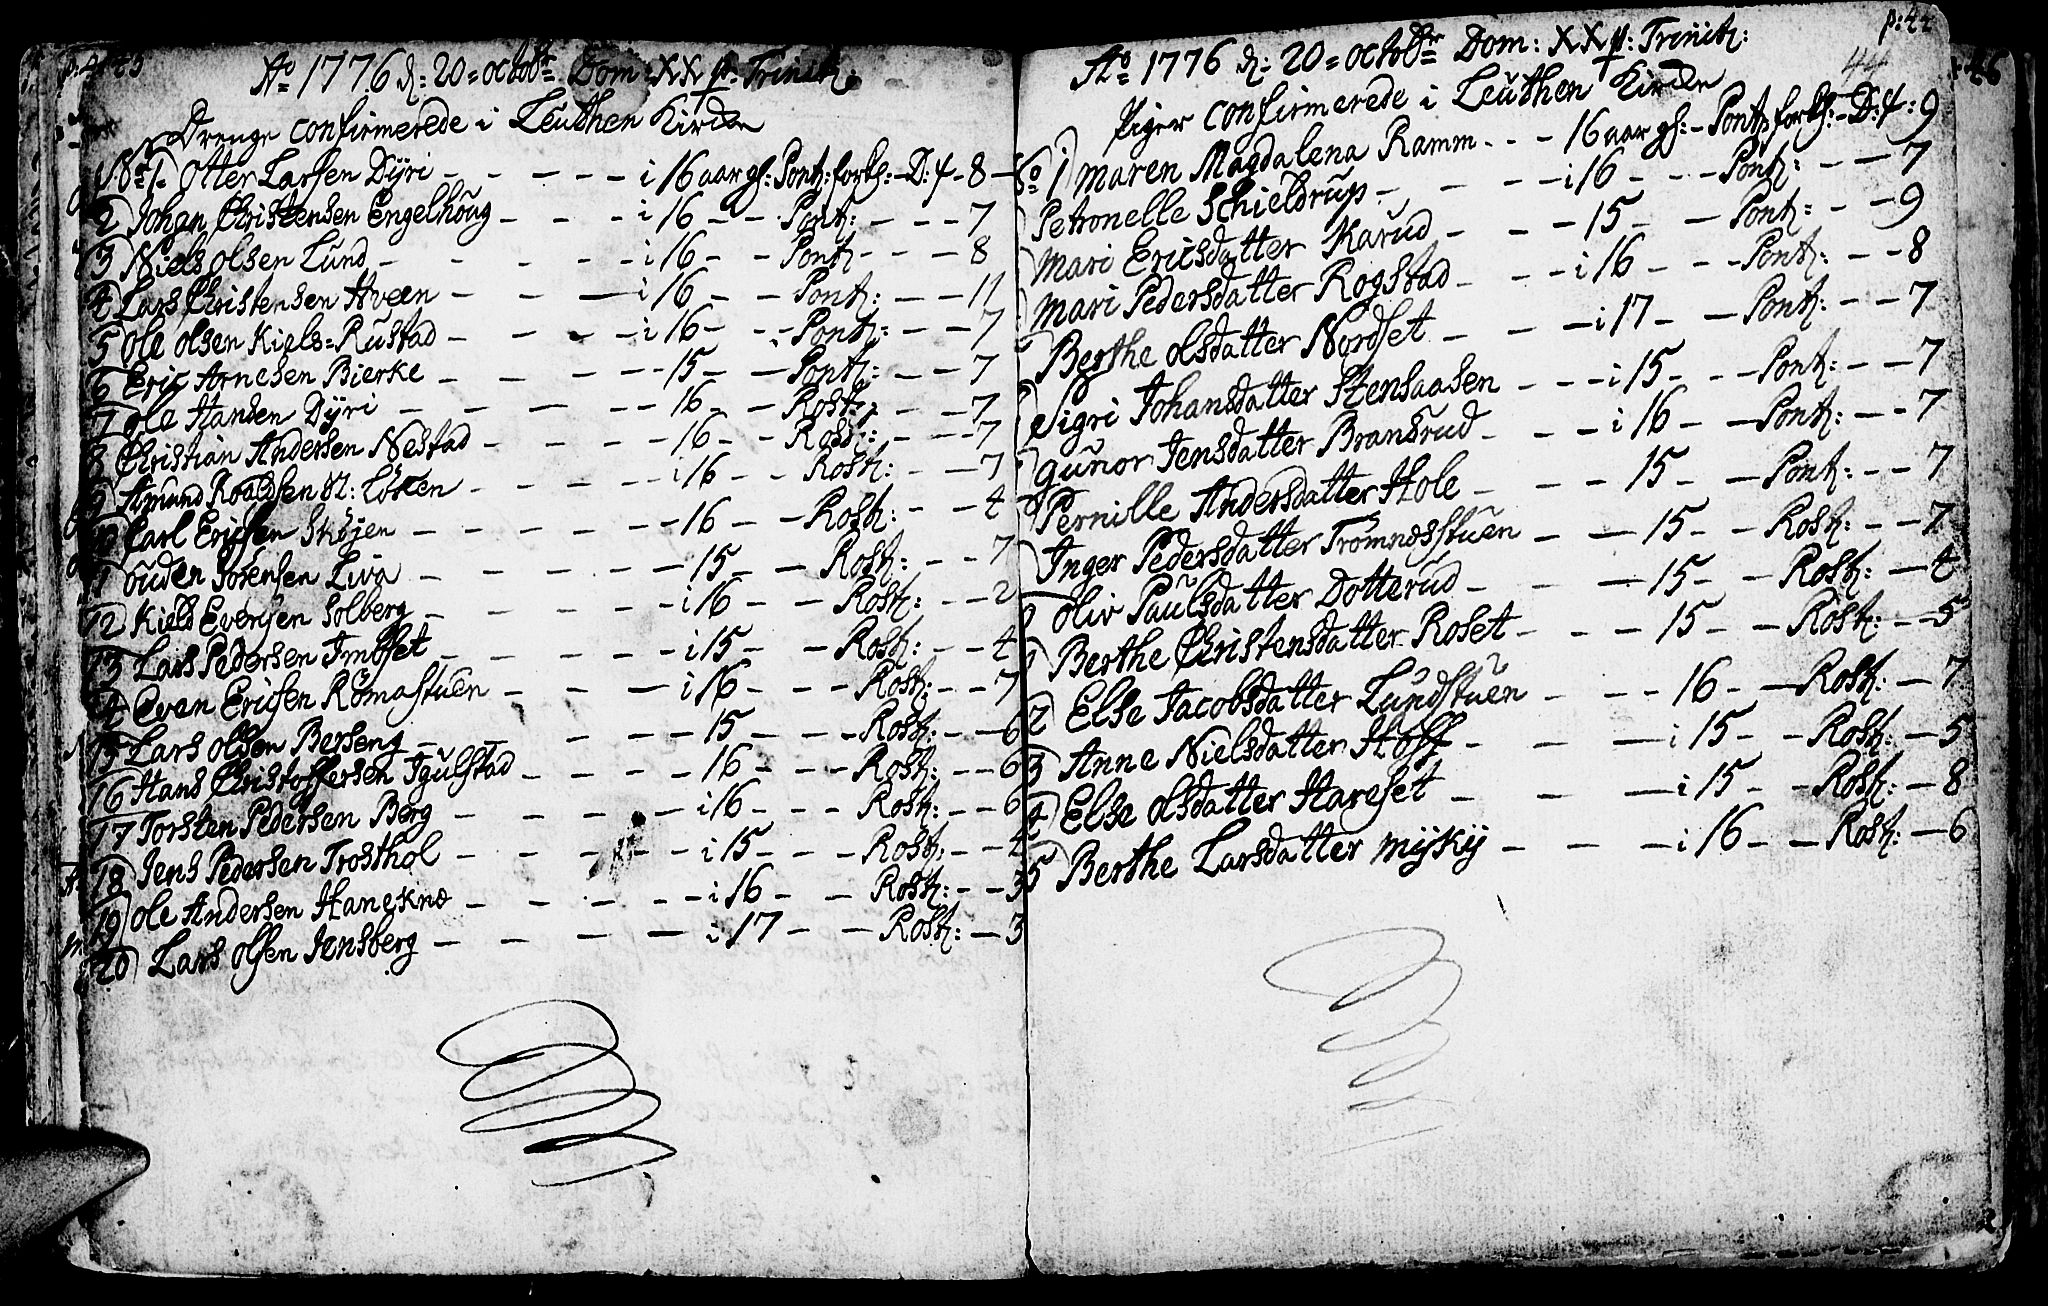 Aº 1776 d: 20 = octobr Dom: XX p. Trinit:
Drenge confirmerede i Leuthen Kircke
Nº 1. Otter Larsen Dÿri - - - - - i 16 aar gl: Pont: forkl: - D: 4 - 8 -
2 Johan Christensen Engelhoug - - - i 16 - - Pont: - - - 7
3 Niels olsen Lund - - - - - i 16 - - Pont: - - - 8
4 Lars Christensen Hveen - - - i 16 - - Pont: - - 11
5 Ole olsen Kiels=Rustad - - - - i 16 - - Pont: - - 7
6 Eric Arnesen Bierke - - - - 15 - - Pont: - - 7
7 Ole Hansen Dÿri - - - - - 16 - - Rosk: - - 7
8 Christian Andersen Nestad - - - - 16 - - Rosk: - - 7
9 Amund Roaldsen Löken - - - - i 16 - - Rosk: - - 7
Carl Ericsen Skøjen - - - - - 16 - - Rosk: - - 4
ouden Sörensen Liva - - - - - 15 - - Rosk: - - 7
12 Kield Evensen Solberg - - - - i 16 - - Rosk: - - 2
13 Lars Pedersen Imøset - - - - i 15 - - Rosk: - - 4
Even Ericsen Römastuen - - - i 16 - - - Rosk: - - 7
15 Lars olsen Berseng - - - - - 15 - - - Rosk: - - 6
16 Hans Christoffersen Igulstad - - - - 16 - - - Rosk: - - 6
17 Torsten Pedersen Berg - - - - - i 16 - - - Rosk: - - 6
18 Jens Pedersen Trosthol - - - - - i 15 - - - Rosk: - - 4
19 Ole Andersen Haneknæ - - - - - i 16 - - - Rosk: - - 3
20 Lars olsen Jensberg - - - - - i 17 - - Rosk: - 3
p: 44
44
46
Aº 1776 d: 20 = octobr Dom: XX p: Trinit:
Piger confirmerede i Leuthen Kircke
Nº 1 Maren Magdalena Ramm - - - 16 aar gl: - Pont: forkl: - D: 4: 9
Petronelle Schieldrup - - - i 16 - - - Pont: - - 7
Mari Ericsdatter Karud - - - 15 - - Pont: - - 9
Mari Pedersdatter Rogstad - - - i 16 - - - Pont: - - 8
Berthe olsdatter Nordset - - - i 17 - - Pont: - - 7
Sigri Johansdatter Stensaasen - - - i 15 - - - Pont: - - 7
Gunor Jensdatter Brandrud - - - i 16 - - Pont: - - 7
Pernille Andersdatter Hole - - - 15 - - Pont: - - 7
Inger Pedersdatter Trömnæsstuen - - 15 - - Rosk: - - 7
oliv Paulsdatter Dotterud - - - 15 - - Rosk: - 4
Berthe Christensdatter Roset - - - 15 - - Rosk: - 5
2 Else Jacobsdatter Lundstuen - - - 16 - - Rosk: - 7
3 Anne Nielsdatter Hoff - - - i 15 - - Rosk: - 5
4 Else olsdatter Hareset - - - i 15 - - Rosk: - 8
5 Berthe Larsdatter Mÿkÿ - - - i 16 - - Rosk: - 6